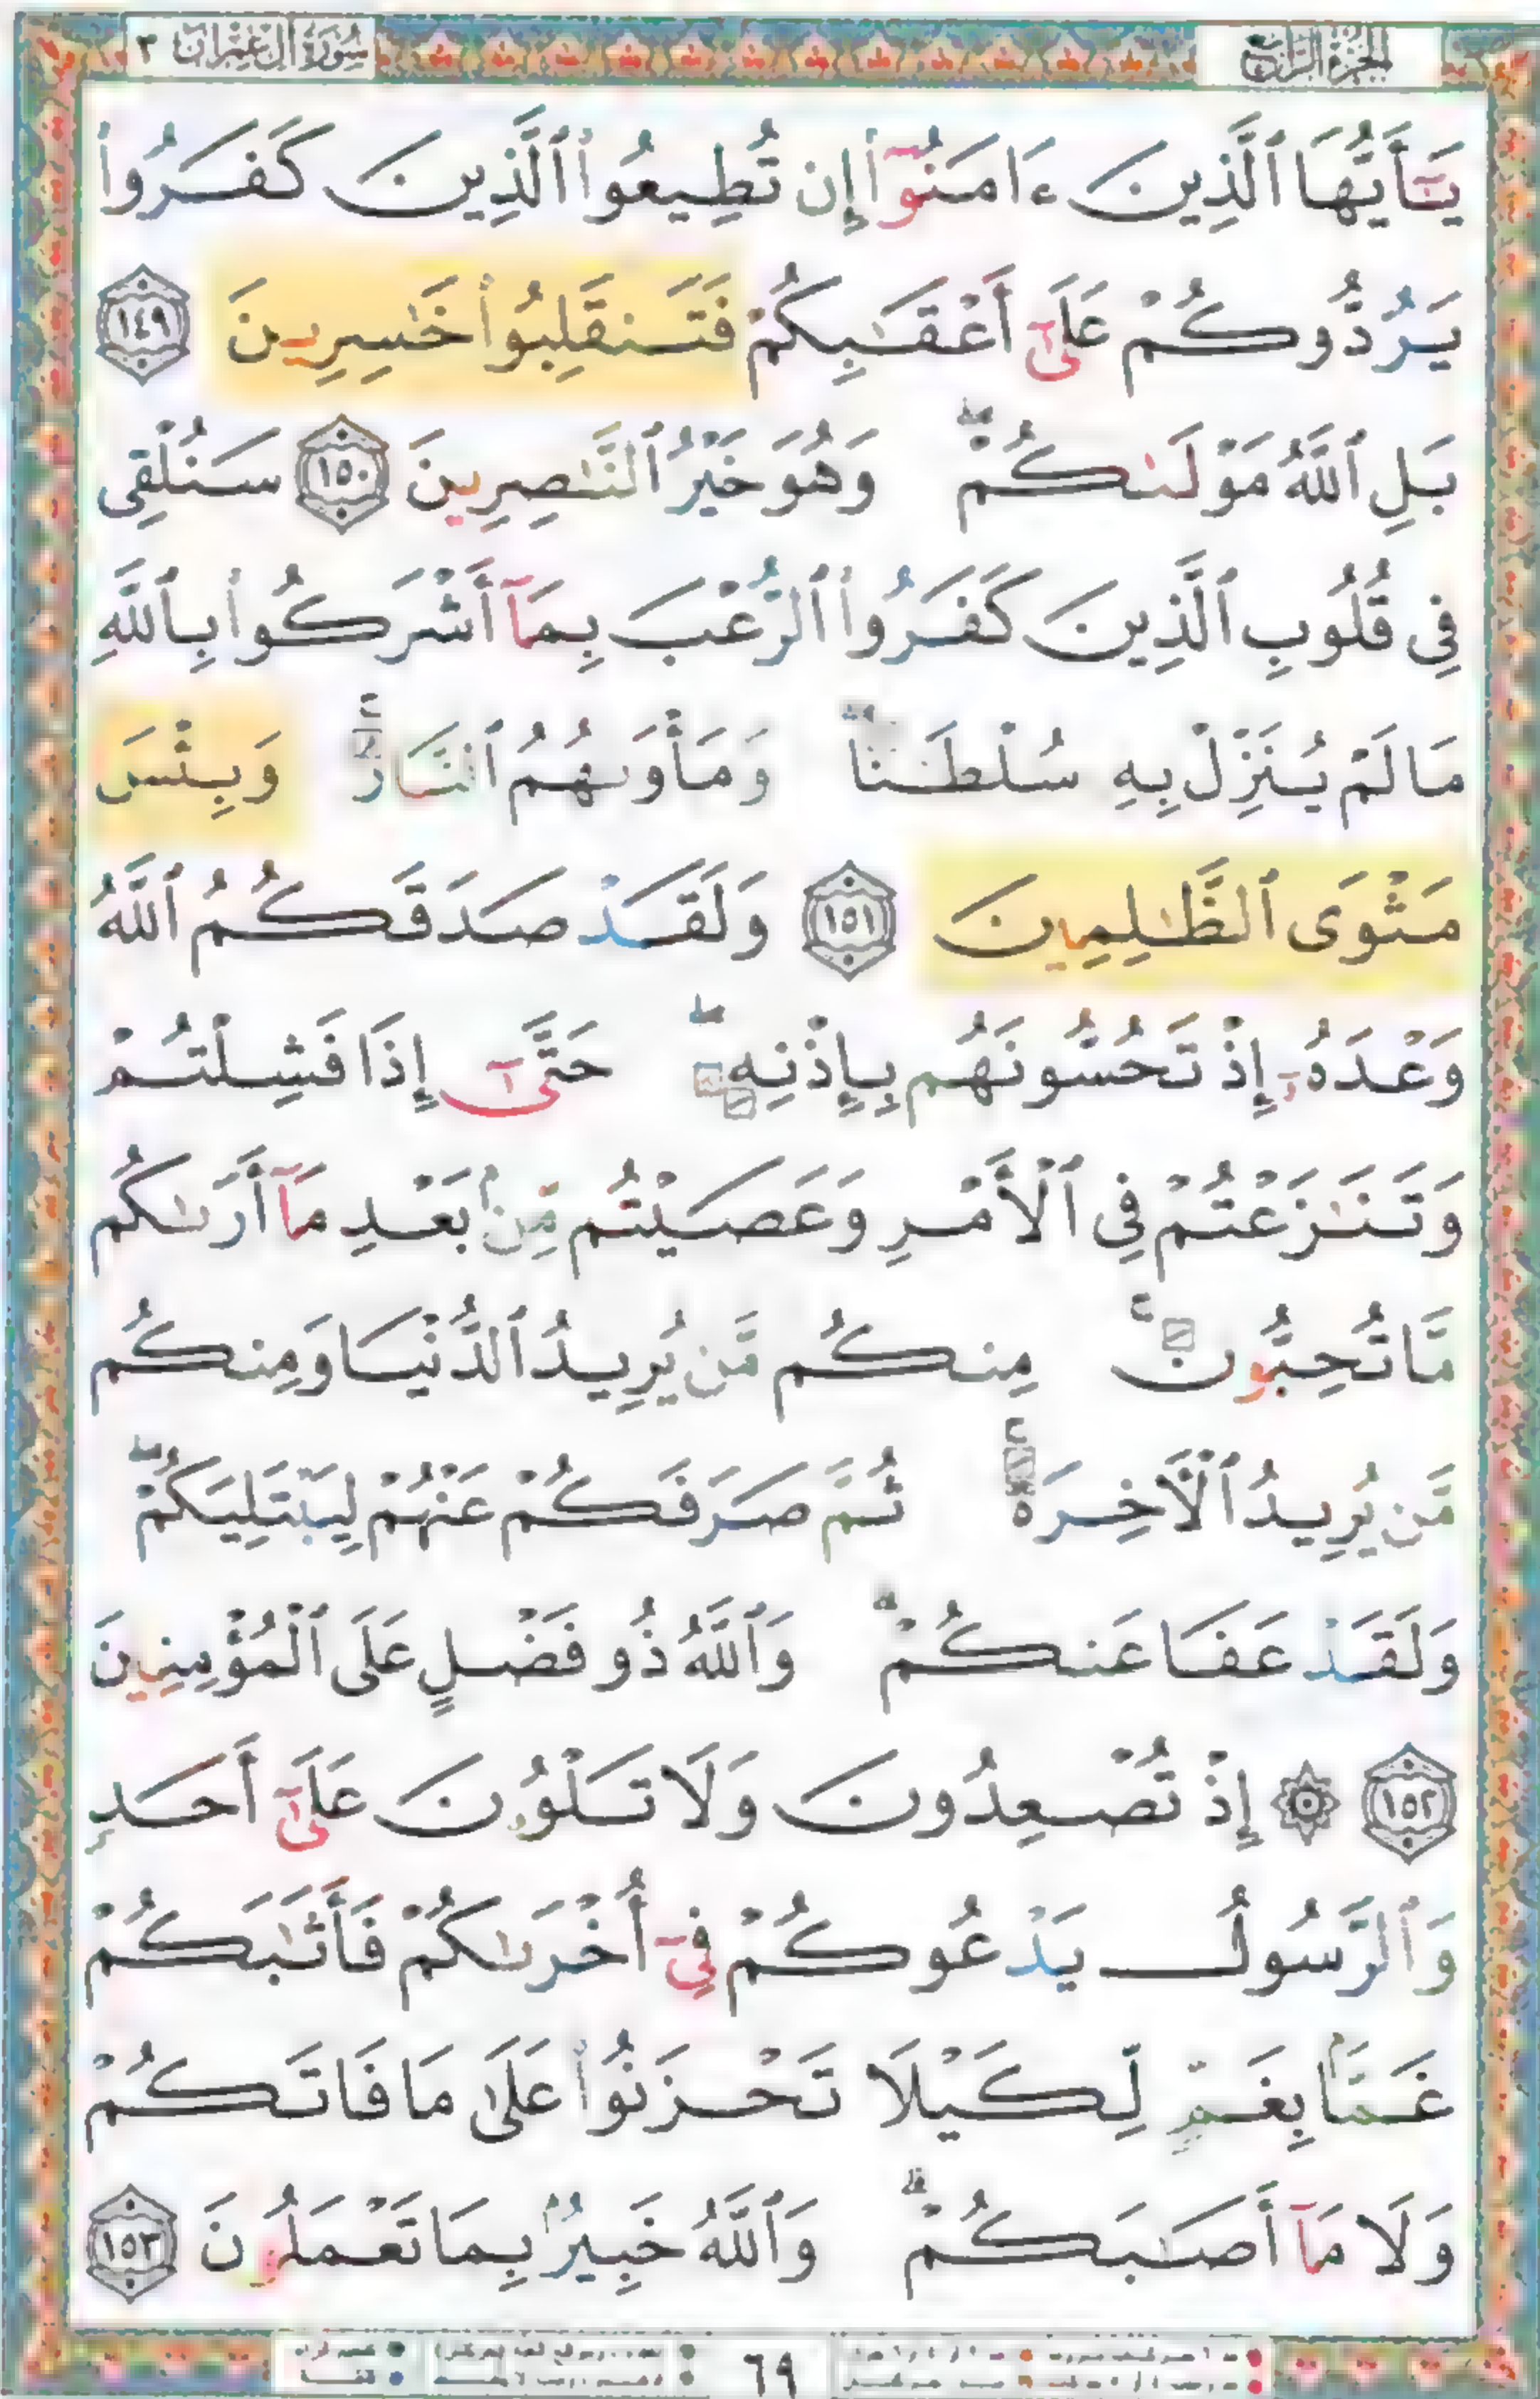 الجزء الرابع
سورة آل عمران ٣
يَـٰٓأَيُّهَا ٱلَّذِينَ ءَامَنُوٓا۟ إِن تُطِيعُوا۟ ٱلَّذِينَ كَفَرُوا۟
يَرُدُّوكُمْ عَلَىٰٓ أَعْقَـٰبِكُمْ فَتَنقَلِبُوا۟ خَـٰسِرِينَ ١٤٩
بَلِ ٱللَّهُ مَوْلَىٰكُمْ ۖ وَهُوَ خَيْرُ ٱلنَّـٰصِرِينَ ١٥٠ سَنُلْقِى
فِى قُلُوبِ ٱلَّذِينَ كَفَرُوا۟ ٱلرُّعْبَ بِمَآ أَشْرَكُوا۟ بِٱللَّهِ
مَا لَمْ يُنَزِّلْ بِهِۦ سُلْطَـٰنًا ۖ وَمَأْوَىٰهُمُ ٱلنَّارُ ۚ وَبِئْسَ
مَثْوَى ٱلظَّـٰلِمِينَ ١٥١ وَلَقَدْ صَدَقَكُمُ ٱللَّهُ
وَعْدَهُۥٓ إِذْ تَحُسُّونَهُم بِإِذْنِهِۦ ۖ حَتَّىٰٓ إِذَا فَشِلْتُمْ
وَتَنَـٰزَعْتُمْ فِى ٱلْأَمْرِ وَعَصَيْتُم مِّنۢ بَعْدِ مَآ أَرَىٰكُم
مَّا تُحِبُّونَ ۚ مِنكُم مَّن يُرِيدُ ٱلدُّنْيَا وَمِنكُم
مَّن يُرِيدُ ٱلْـَٔاخِرَةَ ۚ ثُمَّ صَرَفَكُمْ عَنْهُمْ لِيَبْتَلِيَكُمْ ۖ
وَلَقَدْ عَفَا عَنكُمْ ۗ وَٱللَّهُ ذُو فَضْلٍ عَلَى ٱلْمُؤْمِنِينَ
١٥٢ ۞ إِذْ تُصْعِدُونَ وَلَا تَلْوُۥنَ عَلَىٰٓ أَحَدٍ
وَٱلرَّسُولُ يَدْعُوكُمْ فِىٓ أُخْرَىٰكُمْ فَأَثَـٰبَكُمْ
غَمًّۢا بِغَمٍّ لِّكَيْلَا تَحْزَنُوا۟ عَلَىٰ مَا فَاتَكُمْ
وَلَا مَآ أَصَـٰبَكُمْ ۗ وَٱللَّهُ خَبِيرٌۢ بِمَا تَعْمَلُونَ ١٥٣
٦٩